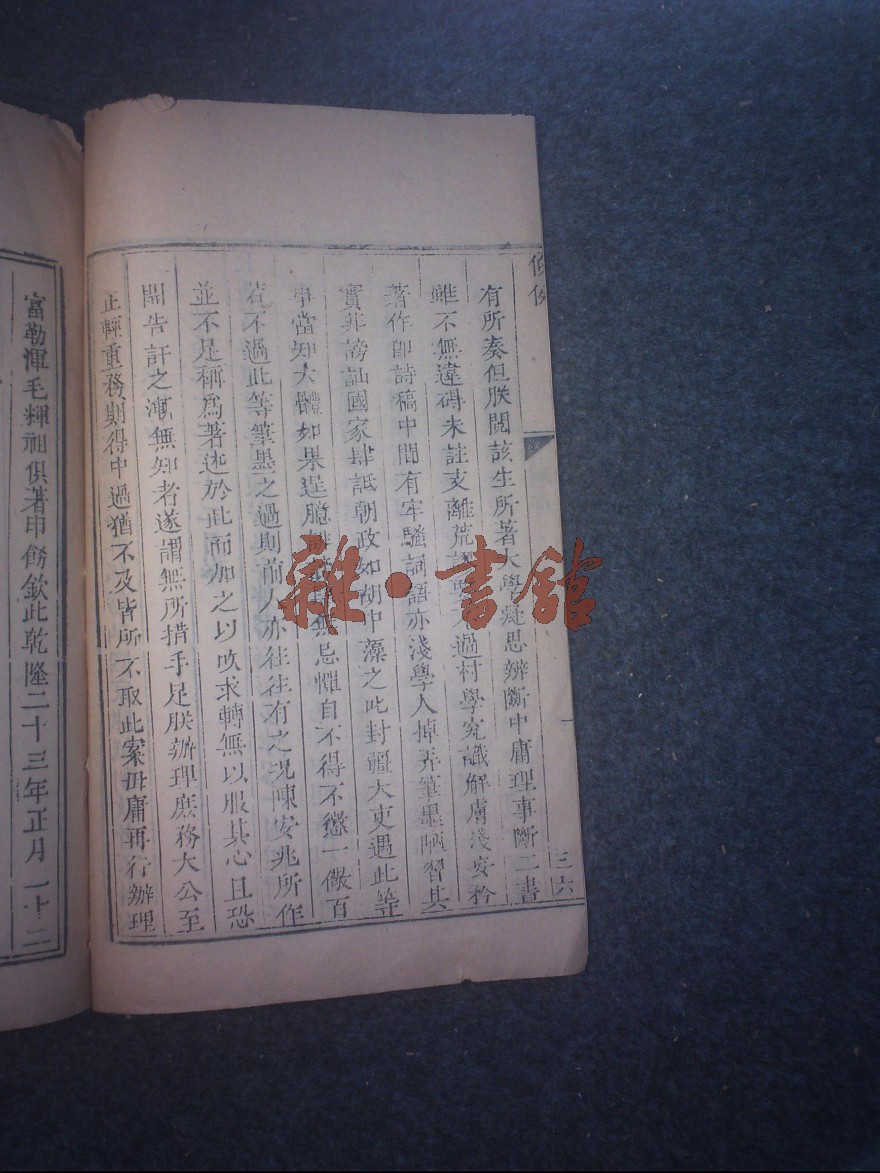 條例
三六
有所奏但朕閱該生所著大學疑思辨斷中庸理事斷二書
雖不無違碍未註支離荒 過村學究識解膚淺妄矜
著作即詩稿中間有牢騷詞語亦淺學人掉弄筆墨陋習其
實非謗訕國家肆詆朝政如胡中藻之比封疆大吏遇此等
事當知大體如果逞臆 無忌憚自不得不懲一儆百
若不過此等筆墨之過則前人亦往往有之況陳安兆所作
並不足稱為著述於此而加之以吹求轉無以服其心且恐
開告訐之漸無知者遂謂無所措手足朕辦理庶務大公至
正輕重務則得中過猶不及皆所不取此案毋庸再行辦理
富勒渾毛輝祖俱著申飭欽此乾隆二十三年正月二十二
雜·書館